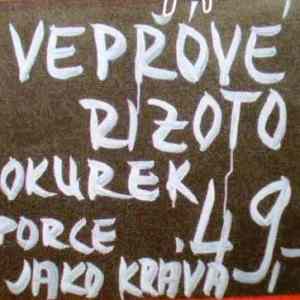 VEPŘOVÉ
RIZOTO
OKUREK
PORCE 49,-
JAKO KRÁVA